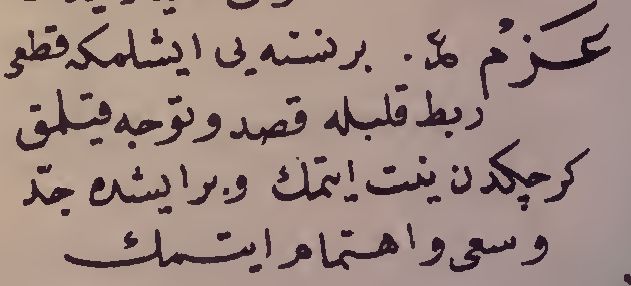 عَزْمْ . برنسنه يى ايشلمكه قطعى
ربط قلبله قصد و توجه قيلمق
كرچكدن نيت ايتمك و برايشده جدّ
وسعى و اهتمام ايتمك